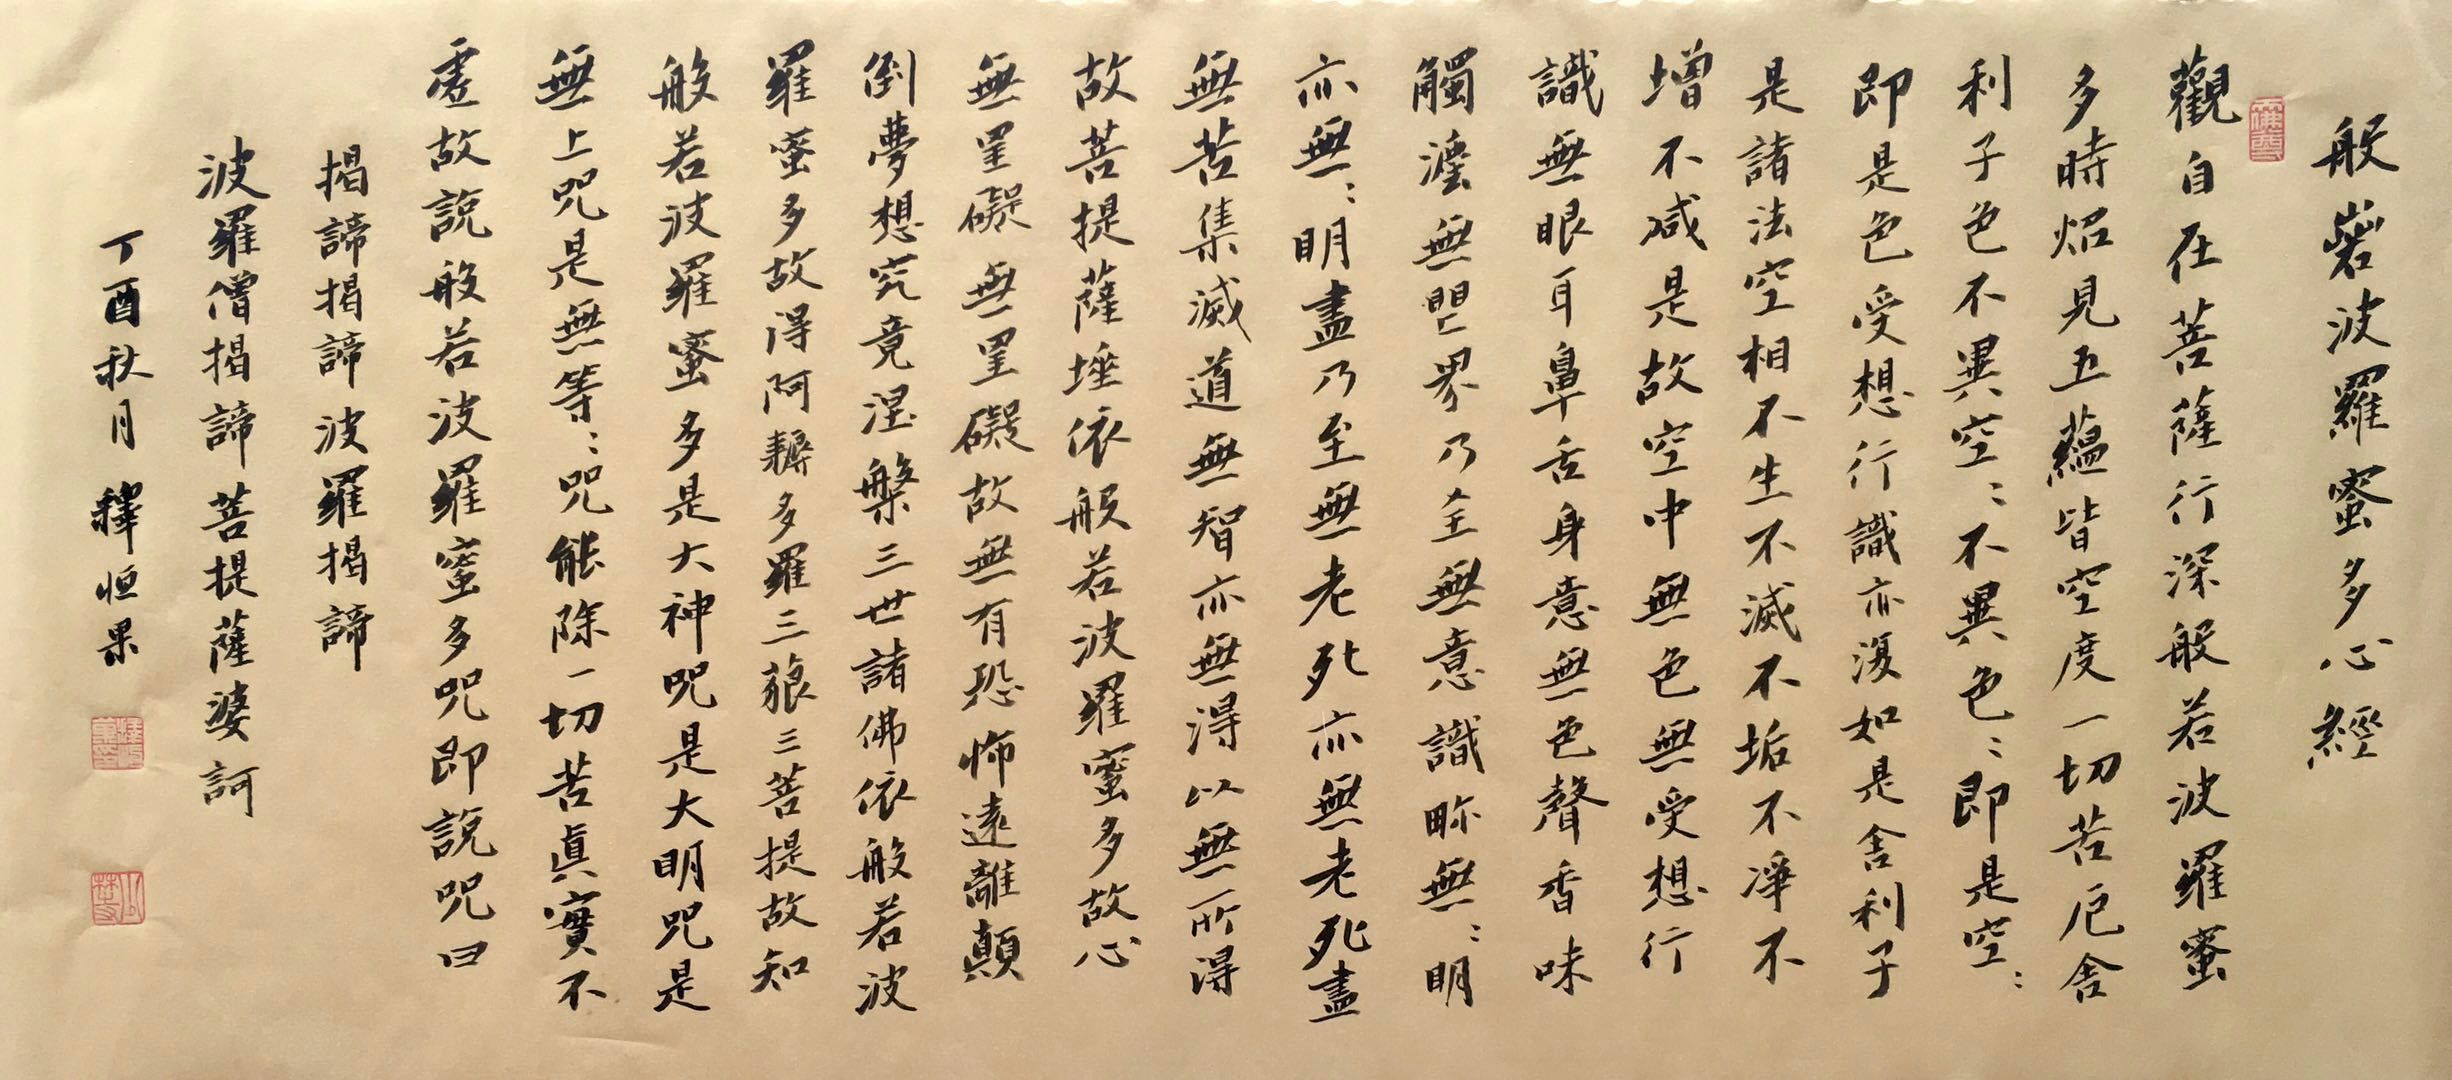 般若波羅蜜多心經
觀自在菩薩行深般若波羅蜜
多時炤見五蘊皆空度一切苦厄舍
利子色不異空:不異色:即是空:
即是色受想行識亦復如是舍利子
是諸法空相不生不滅不垢不淨不
增不減是故空中無色無受想行
識無眼耳鼻舌身意無色聲香味
觸法無眼界乃至無意識界無:明
亦無:明盡乃至無老死亦無老死盡
無苦集滅道無智亦無得以無所得
故菩提薩埵依般若波羅蜜多故心
無罣礙無罣礙故無有恐怖遠離顛
倒夢想究竟涅槃三世諸佛依般若波
羅蜜多故得阿耨多羅三藐三菩提故知
般若波羅蜜多是大神咒是大明咒是
無上咒是無等:咒能除一切苦真實不
虛故說般若波羅蜜多咒即說咒曰
揭諦揭諦波羅揭諦
波羅僧揭諦菩提薩婆訶
丁酉秋月釋恒果